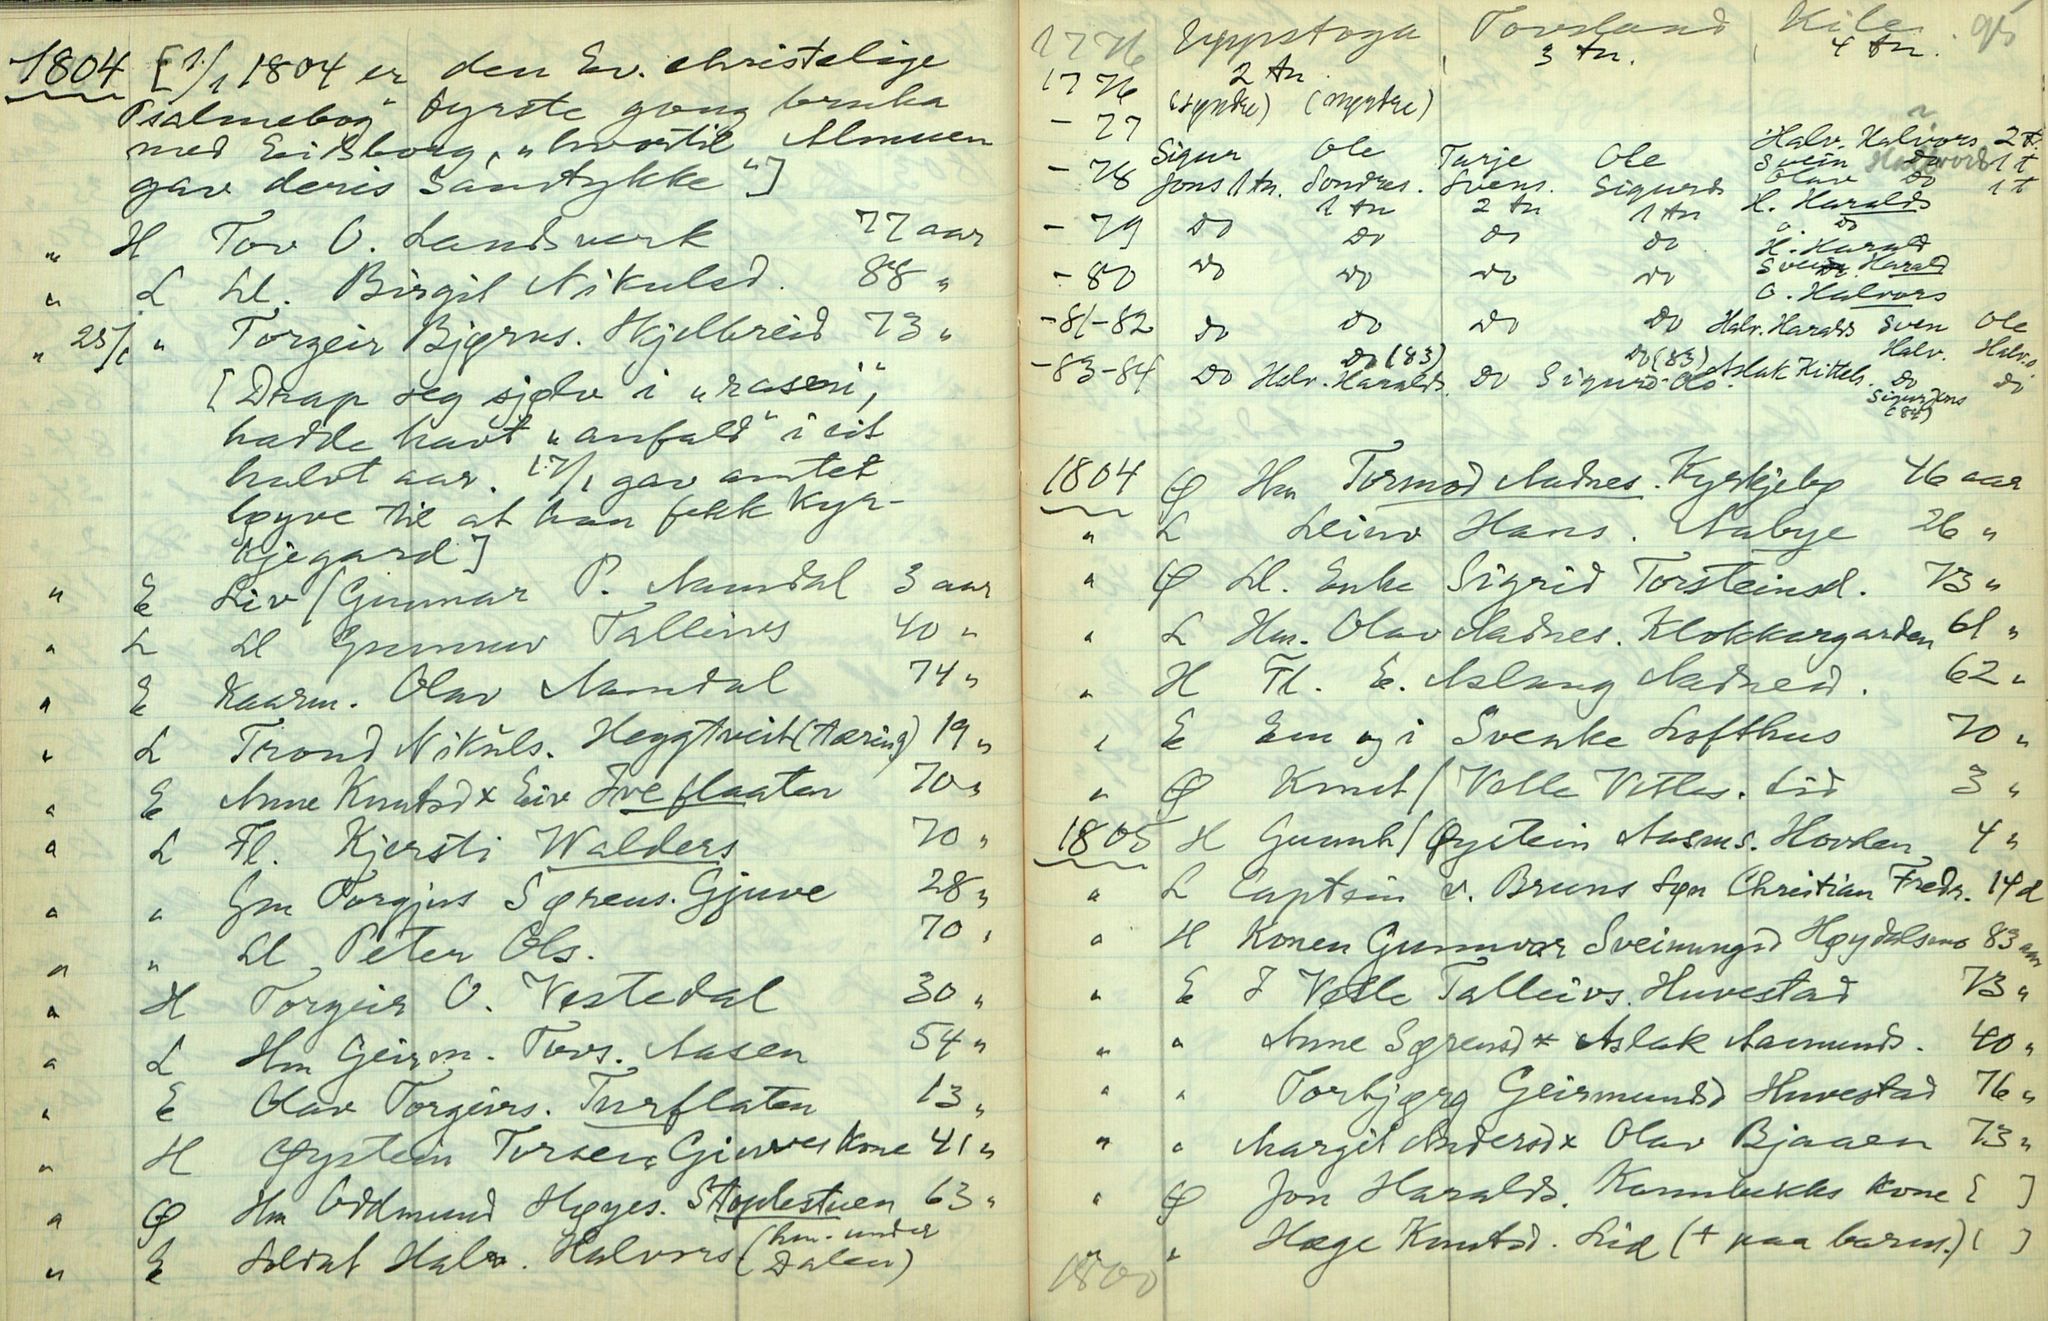 1804 [1/1 1804 er den Ev. christelige
Psalmebog" fyrste gong bruka
med Eidsborg, "hvortil Almuen
gav deris Samtykke"]
" H Tov O. Landsverk 77 aar
" L Ll. Birgit Nikulsd. 88 "
" 25/1 " Torgeir Bjørns. Hjelbreid 73 "
[Drap seg sjølv i "raseri",
hadde havt "anfald" i eit
halvt aar. 17/1 gav amtet
løyve til at han fekk Kyr-
kjegard]
" E Liv / Gunnar P. Aamdal 3 aar
" L Ll Gunnuv Talleivs 40 "
" E Kaarm. Olav Aamdal 74 "
" L Trond Nikuls. Heggtveit (tæring) 19 "
" E Anne Knutsd x Eiv Iveflaaten 70 "
" L Fl. Kjersti Walders 70 "
" " Gm Torgjus Sørens. Gjuve 28 "
" " Ll Peter Ols. 70 "
" H Torgeir O. Vestedal 30 "
" L Hm Geirm. Tovs. Aasen 54 "
" E Olav Torgeirs. Turflaten 13 "
" H Øystein Torsen Gjuves Kone 41 "
" Ø Hm Oddmund Høyes. Stoplestuen 63 "
" E Soldat Halv. Halvors (hm. under Dalen)
1776 Uppstoga Tovsland Kile 95
1776 2 tn. 3 tn. 4 tn.
(syndre) (nyrdre)
- 77 Halv. Halvors 2 t.
- 78 Sigur Ole Turje Ole Svein do 1 t
Jons 1 tn. Sondres. Svens. Sigurds Olav do 1 t
1 tn 2 tn 1 tn H. Haralds
- 79 do do do do O. do
H. Harald
- 80 do do do do Svein Harald
O. Halvors
- 81-82 do do do do Halv. Haralds Sven Ole
do (83) do (83) Halv. Halvs.
- 83-84 do Halv. Haralds. do Sigurd Ols. Aslak Kittels. do do
Sigur Jons
(84)
1804 Ø Hm Tormod Aadnes. Kyrkjebø 46 aar
" L Leiuv Hans. Aabye 26 "
" Ø Ll. Enke Sigrid Torsteinsd. 73 "
" L Hm. Olav Aadnes. Klokkargarden 61 "
" H Fl. E. Aslaug Aadnesd. 62 "
" E Em og i Svenke Lofthus 70 "
" Ø Knut / Velle Vetles. Lid 3 "
1805 H Gunnh / Øystein Aasms. Hovden 4 "
" L Captein v. Bruns søn Christian Fredr. 14 d
" H Konen Gunnvor Sveinungsd Høydalsmo 83 aar
" E I Vetle Talleivs. Huvestad 73 "
" " Anne Sørensd x Aslak Aamunds. 40 "
" " Torbjørg Geirmundsd Huvestad 76 "
" " Margit Andersd x Olav Bjaaen 73 "
" Ø Jon Haralds. Kone [ ]
" " Hæge Knutsd. Lid (+ paa barns.) [ ]
1800